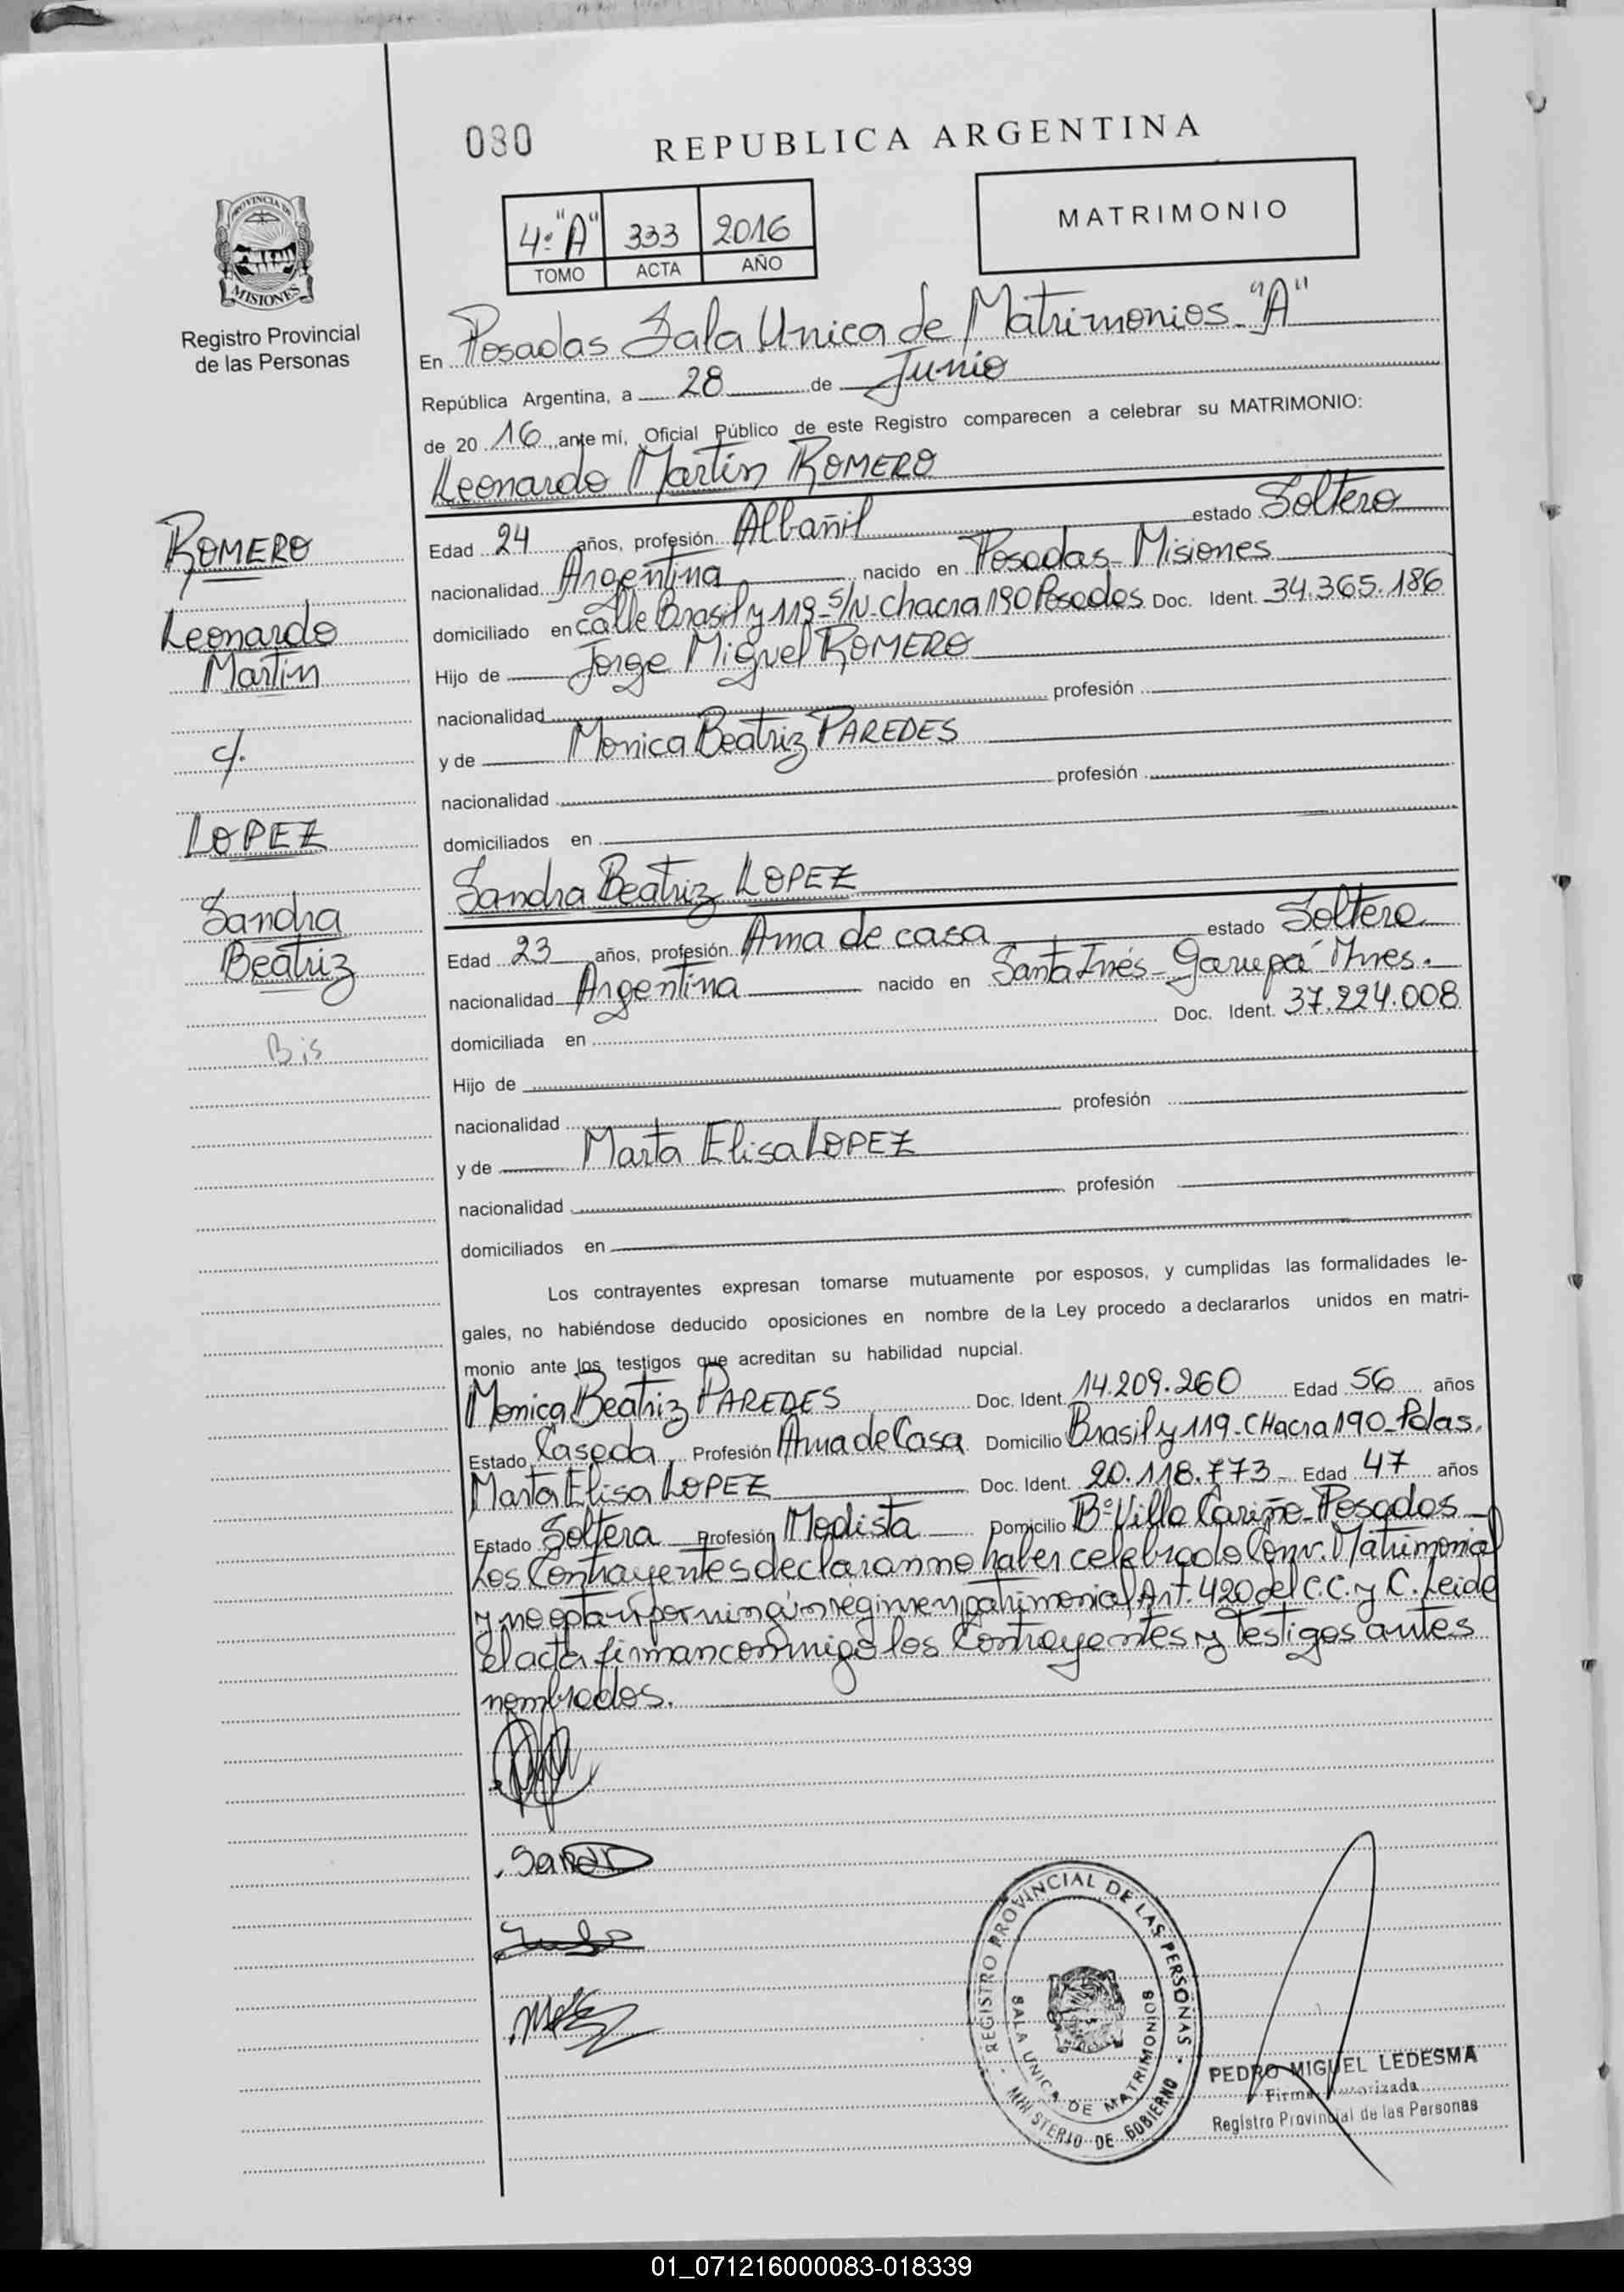 080
REPUBLICA ARGENTINA
4º "A" 333 2016
TOMO ACTA AÑO
MATRIMONIO
PROVINCIA DE
MISIONES
Registro Provincial
de las Personas
En Posadas Sala Unica de Matrimonios "A"
República Argentina, a 28 de Junio
de 2016 ante mí, Oficial Público de este Registro comparecen a celebrar su MATRIMONIO:
Leonardo Martin ROMERO
Edad 24 años, profesión Albañil estado Soltero
nacionalidad Argentina nacido en Posadas Misiones
domiciliado en calle Brasil y 119 S/N. chacra 190 Posadas Doc. Ident. 34.365.186
Hijo de Jorge Miguel ROMERO
nacionalidad profesión
y de Monica Beatriz PAREDES
nacionalidad profesión
domiciliados en
ROMERO
Leonardo
Martin
c/.
LOPEZ
Sandra
Beatriz
Bis
Sandra Beatriz LOPEZ
Edad 23 años, profesión Ama de casa estado Soltera
nacionalidad Argentina nacido en Santa Inés - Garupá Mnes.
domiciliada en Doc. Ident. 37.224.008
Hijo de
nacionalidad profesión
y de Marta Elisa LOPEZ
nacionalidad profesión
domiciliados en
Los contrayentes expresan tomarse mutuamente por esposos, y cumplidas las formalidades le-
gales, no habiéndose deducido oposiciones en nombre de la Ley procedo a declararlos unidos en matri-
monio ante los testigos que acreditan su habilidad nupcial.
Monica Beatriz PAREDES Doc. Ident. 14.209.260 Edad 56 años
Estado Casada Profesión Ama de Casa Domicilio Brasil y 119 - CHacra 190 - Pdas.
Marta Elisa LOPEZ Doc. Ident. 20.118.773 Edad 47 años
Estado Soltera Profesión Modista Domicilio Bº Villa Cariño - Posadas
Los Contrayentes declaran no haber celebrado Conv. Matrimonial
y no optan por ningún regimen patrimonial Art. 420 del C.C. y C. Leida
el acta firman conmigo los Contrayentes y Testigos antes
nombrados.
REGISTRO PROVINCIAL DE LAS PERSONAS
SALA UNICA DE MATRIMONIOS
MINISTERIO DE GOBIERNO
PEDRO MIGUEL LEDESMA
Firma Autorizada
Registro Provincial de las Personas
01_071216000083-018339